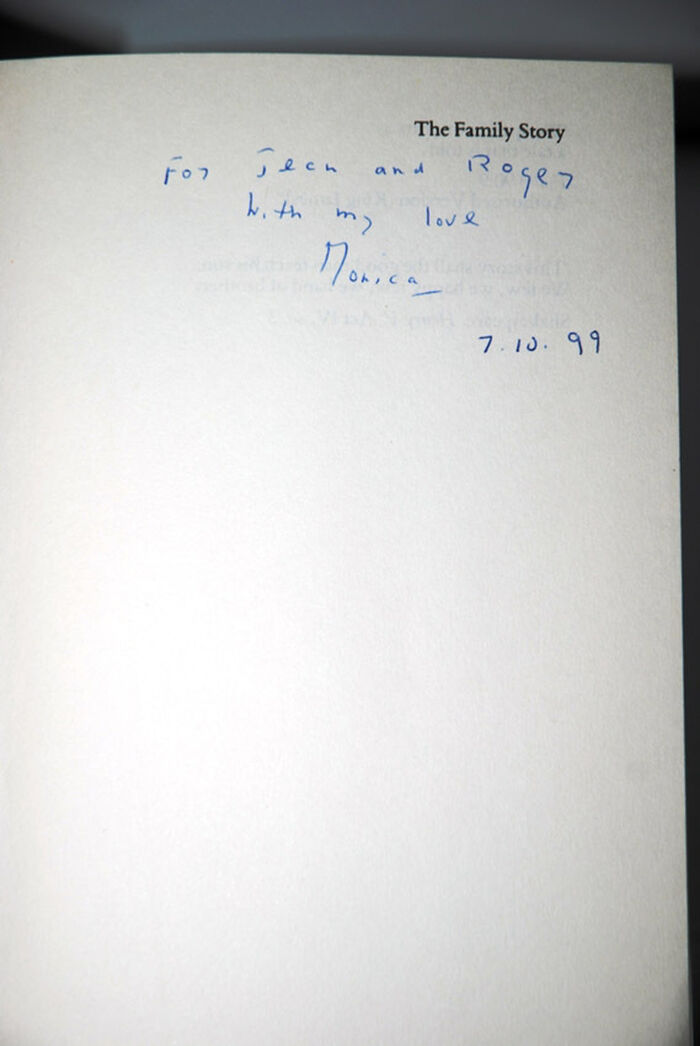 The Family Story
For Jean and Roger
With my love
Monica
7.10.99